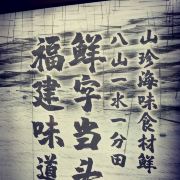 山珍海味食材鲜
八山一水一分田
鲜字当头
福建味道